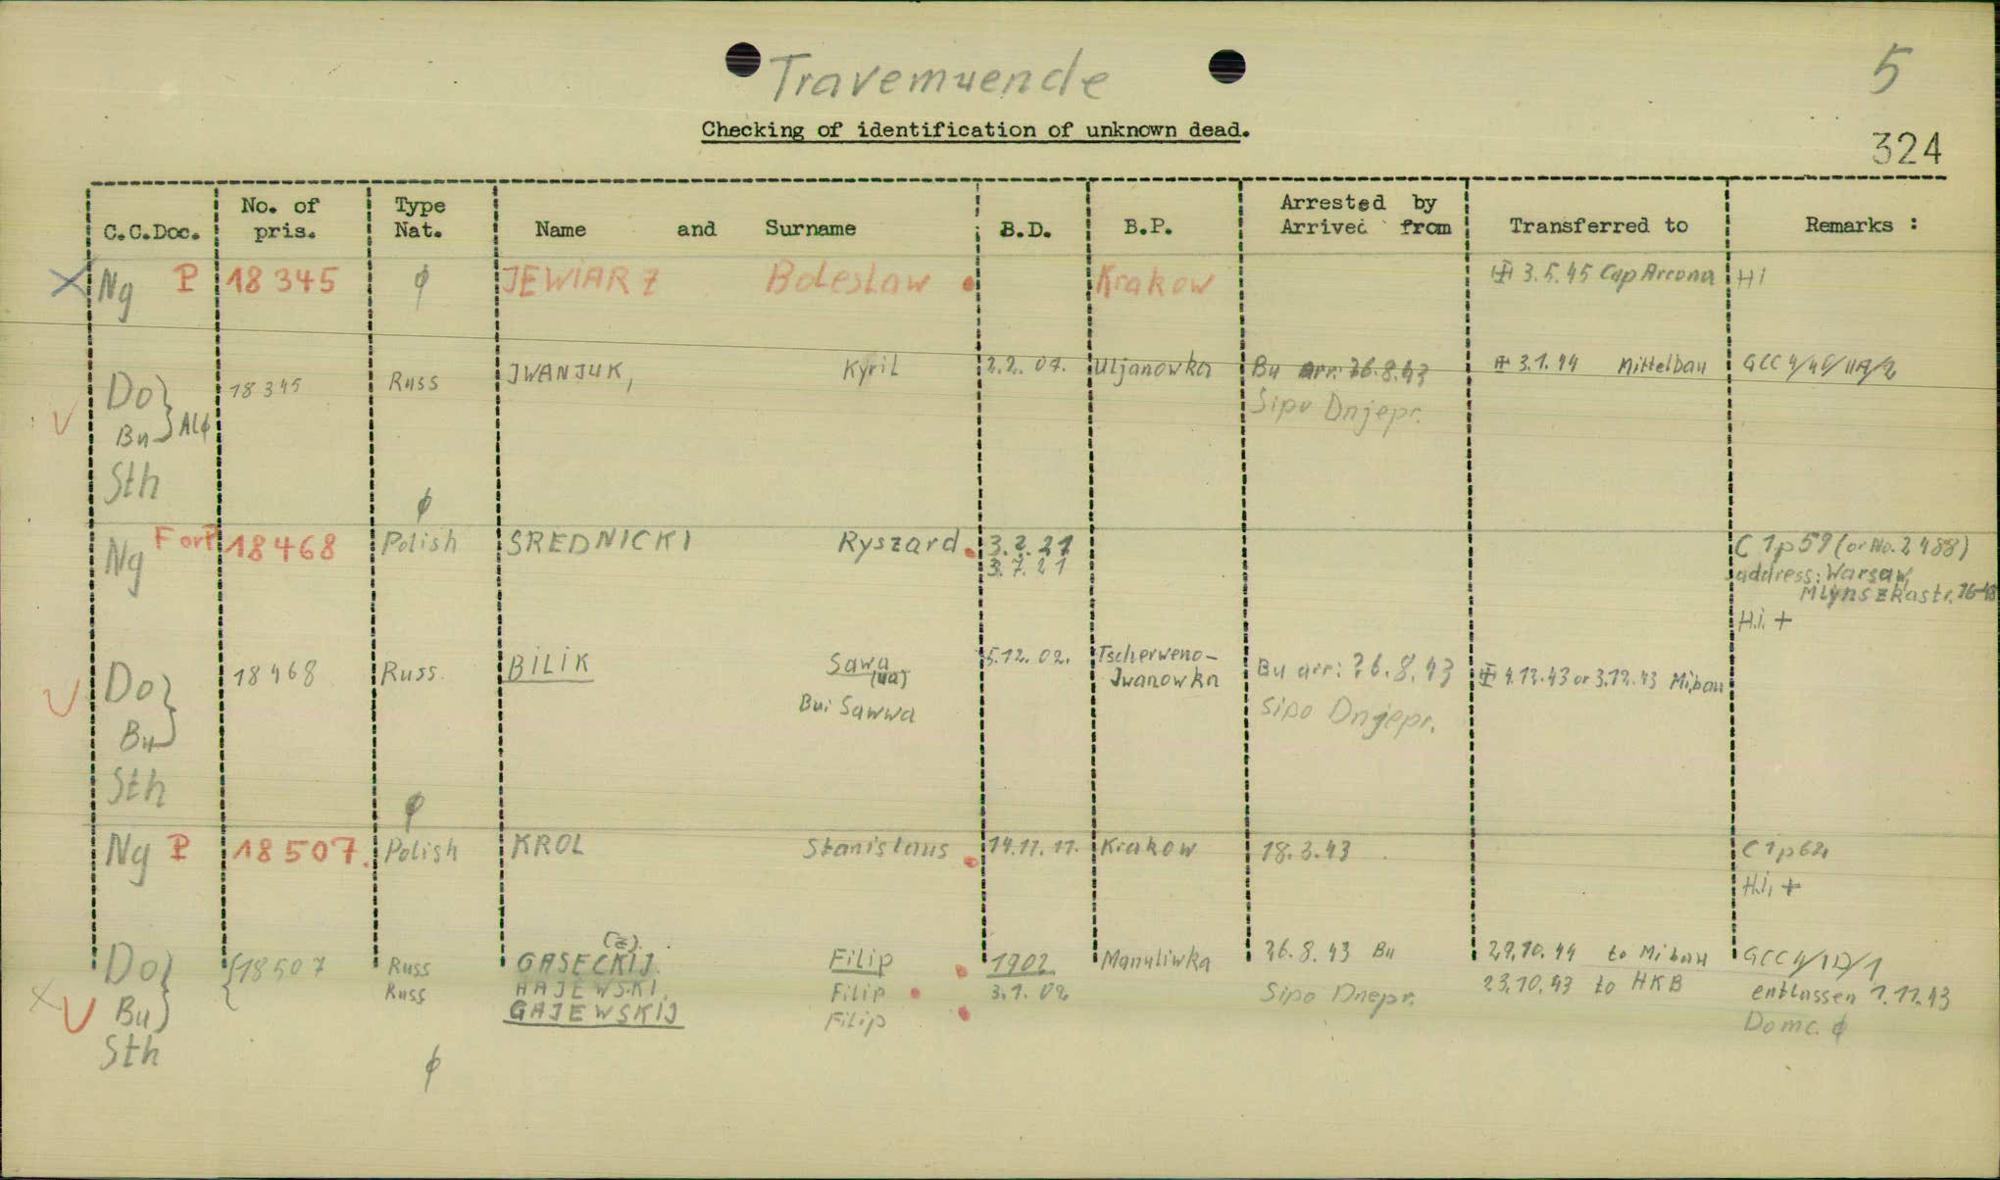 Travemuende
5
Checking of identification of unknown dead.
324
C.C.Doc. No. of pris. Type Nat. Name and Surname B.D. B.P. Arrested by Arrived from Transferred to Remarks :
X Ng P 18345 ϕ JEWIARZ Boleslaw Krakow 3.5.45 Cap Arcona Hi
Do 18345 Russ JWANJUK, Kyril 2.2.07. Uljanowka Bu arr: 26.8.43 3.1.44 Mittelbau GCC
Bu Sipo Dnjepr.
Sth
ϕ
Ng F or P 18468 Polish SREDNICKI Ryszard 3.2.21 C 1p59 (or No. 2488)
3.7.21 address: Warsaw,
Mlynszkastr. 16-48
Hi. +
Do 18468 Russ. BILIK Sawa 5.12.02. Tscherweno- Bu arr: 26.8.43 4.12.43 or 3.12.43 Mibau
(ua) Jwanowka
Bu Bui Sawwa Sipo Dnjepr.
Sth
ϕ
Ng P 18507. Polish KROL Stanislaus 14.11.11. Krakow 18.3.43 C1p62
Hi, +
(z).
Do 18507 Russ GASECKIJ. Filip 1902 Manuliwka 26.8.43 Bu 29.10.44 to Mibau GCC
Russ HAJEWSKI, Filip 3.1.02 Sipo Dnepr. 23.10.43 to HKB entlassen 1.11.43
X V Bu GAJEWSKIJ Filip Domc. ϕ
Sth
ϕ